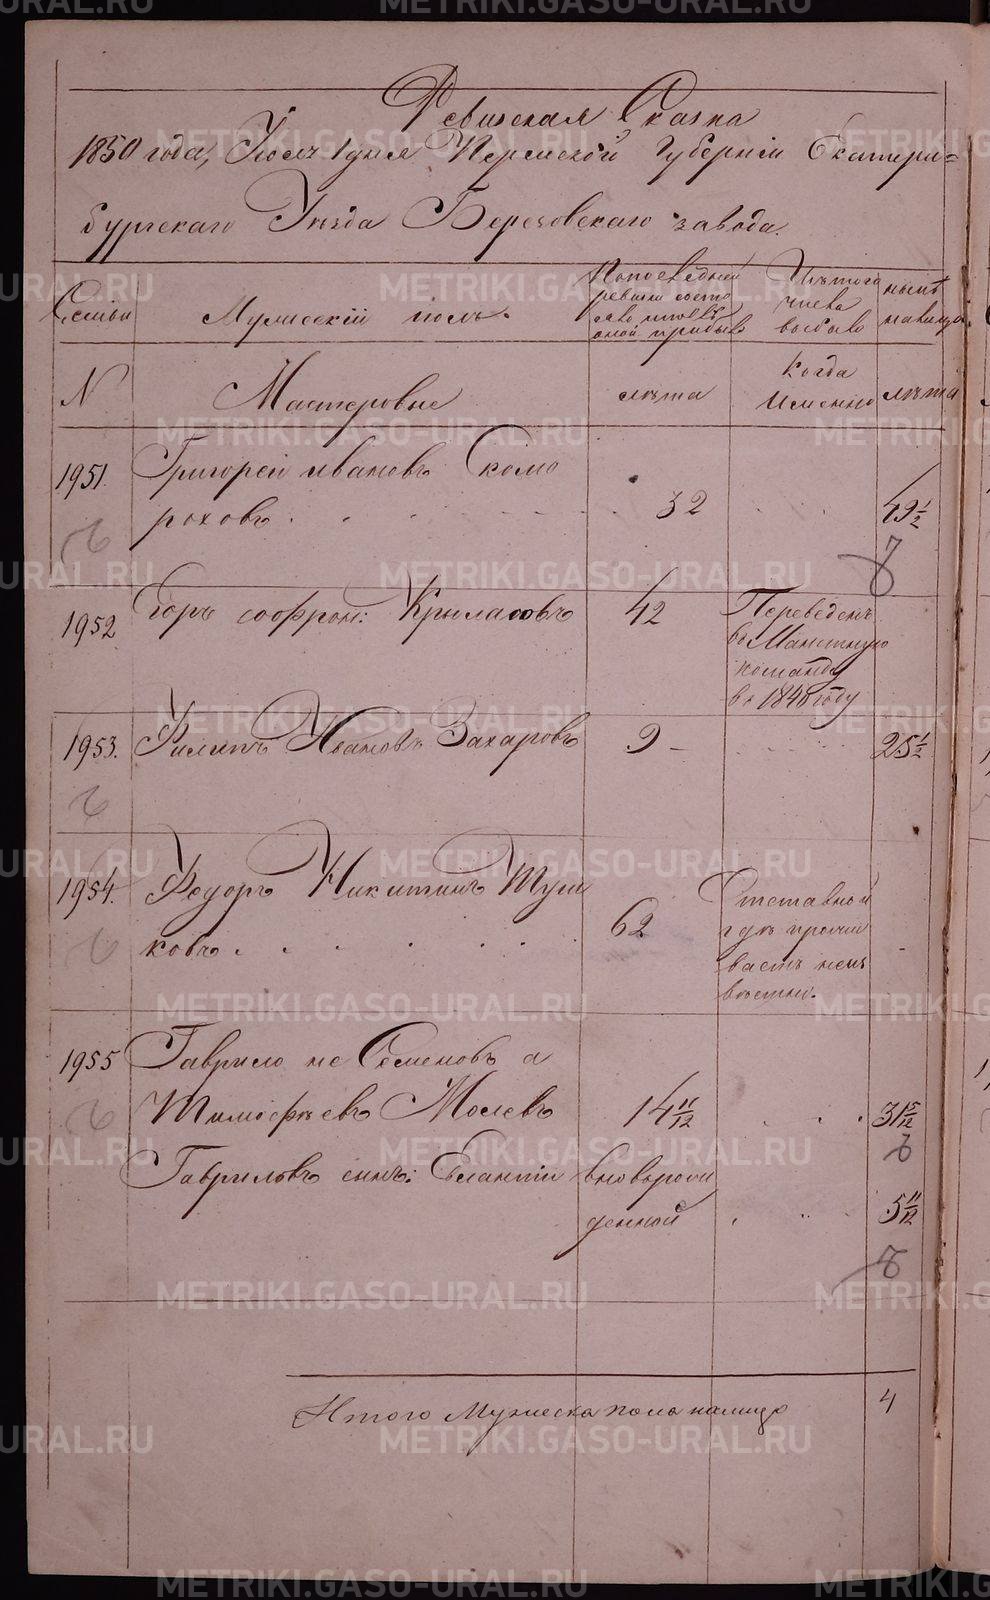 Ревизская Сказка
1850 года, Июля 1 дня Пермской Губернiи Екатерин=
бургскаго Уѣзда Березовскаго завода.
Семьи
Мужескiй полъ.
По последней
ревизiи состо
яло
оной прибыло
Изъ того
числа
выбыло
нынѣ
на лицо
N
Мастеровые
лѣта
Когда
Именно
лѣта
1951.
Григорей Ивановъ Скомо
роховъ
32
49 1/2
1952
Егоръ Софрон: Крыласовъ
42
Переведенъ
въ Манетную
команду
въ 1840 году
1953.
Филипъ Ивановъ Захаровъ
9
25 1/2
1954.
Федоръ Никитинъ Туш
ковъ
62
Отставной
гдѣ прожи
ваетъ неиз
вѣстно.
1955
Гаврило не Семеновъ а
Тимофѣевъ Молевъ
14 11/12
31 5/12
Гавриловъ сынъ: Евлантiй
вновьрож
денной
5 11/12
Итого Мужеска пола налицо
4
METRIKI.GASO-URAL.RU